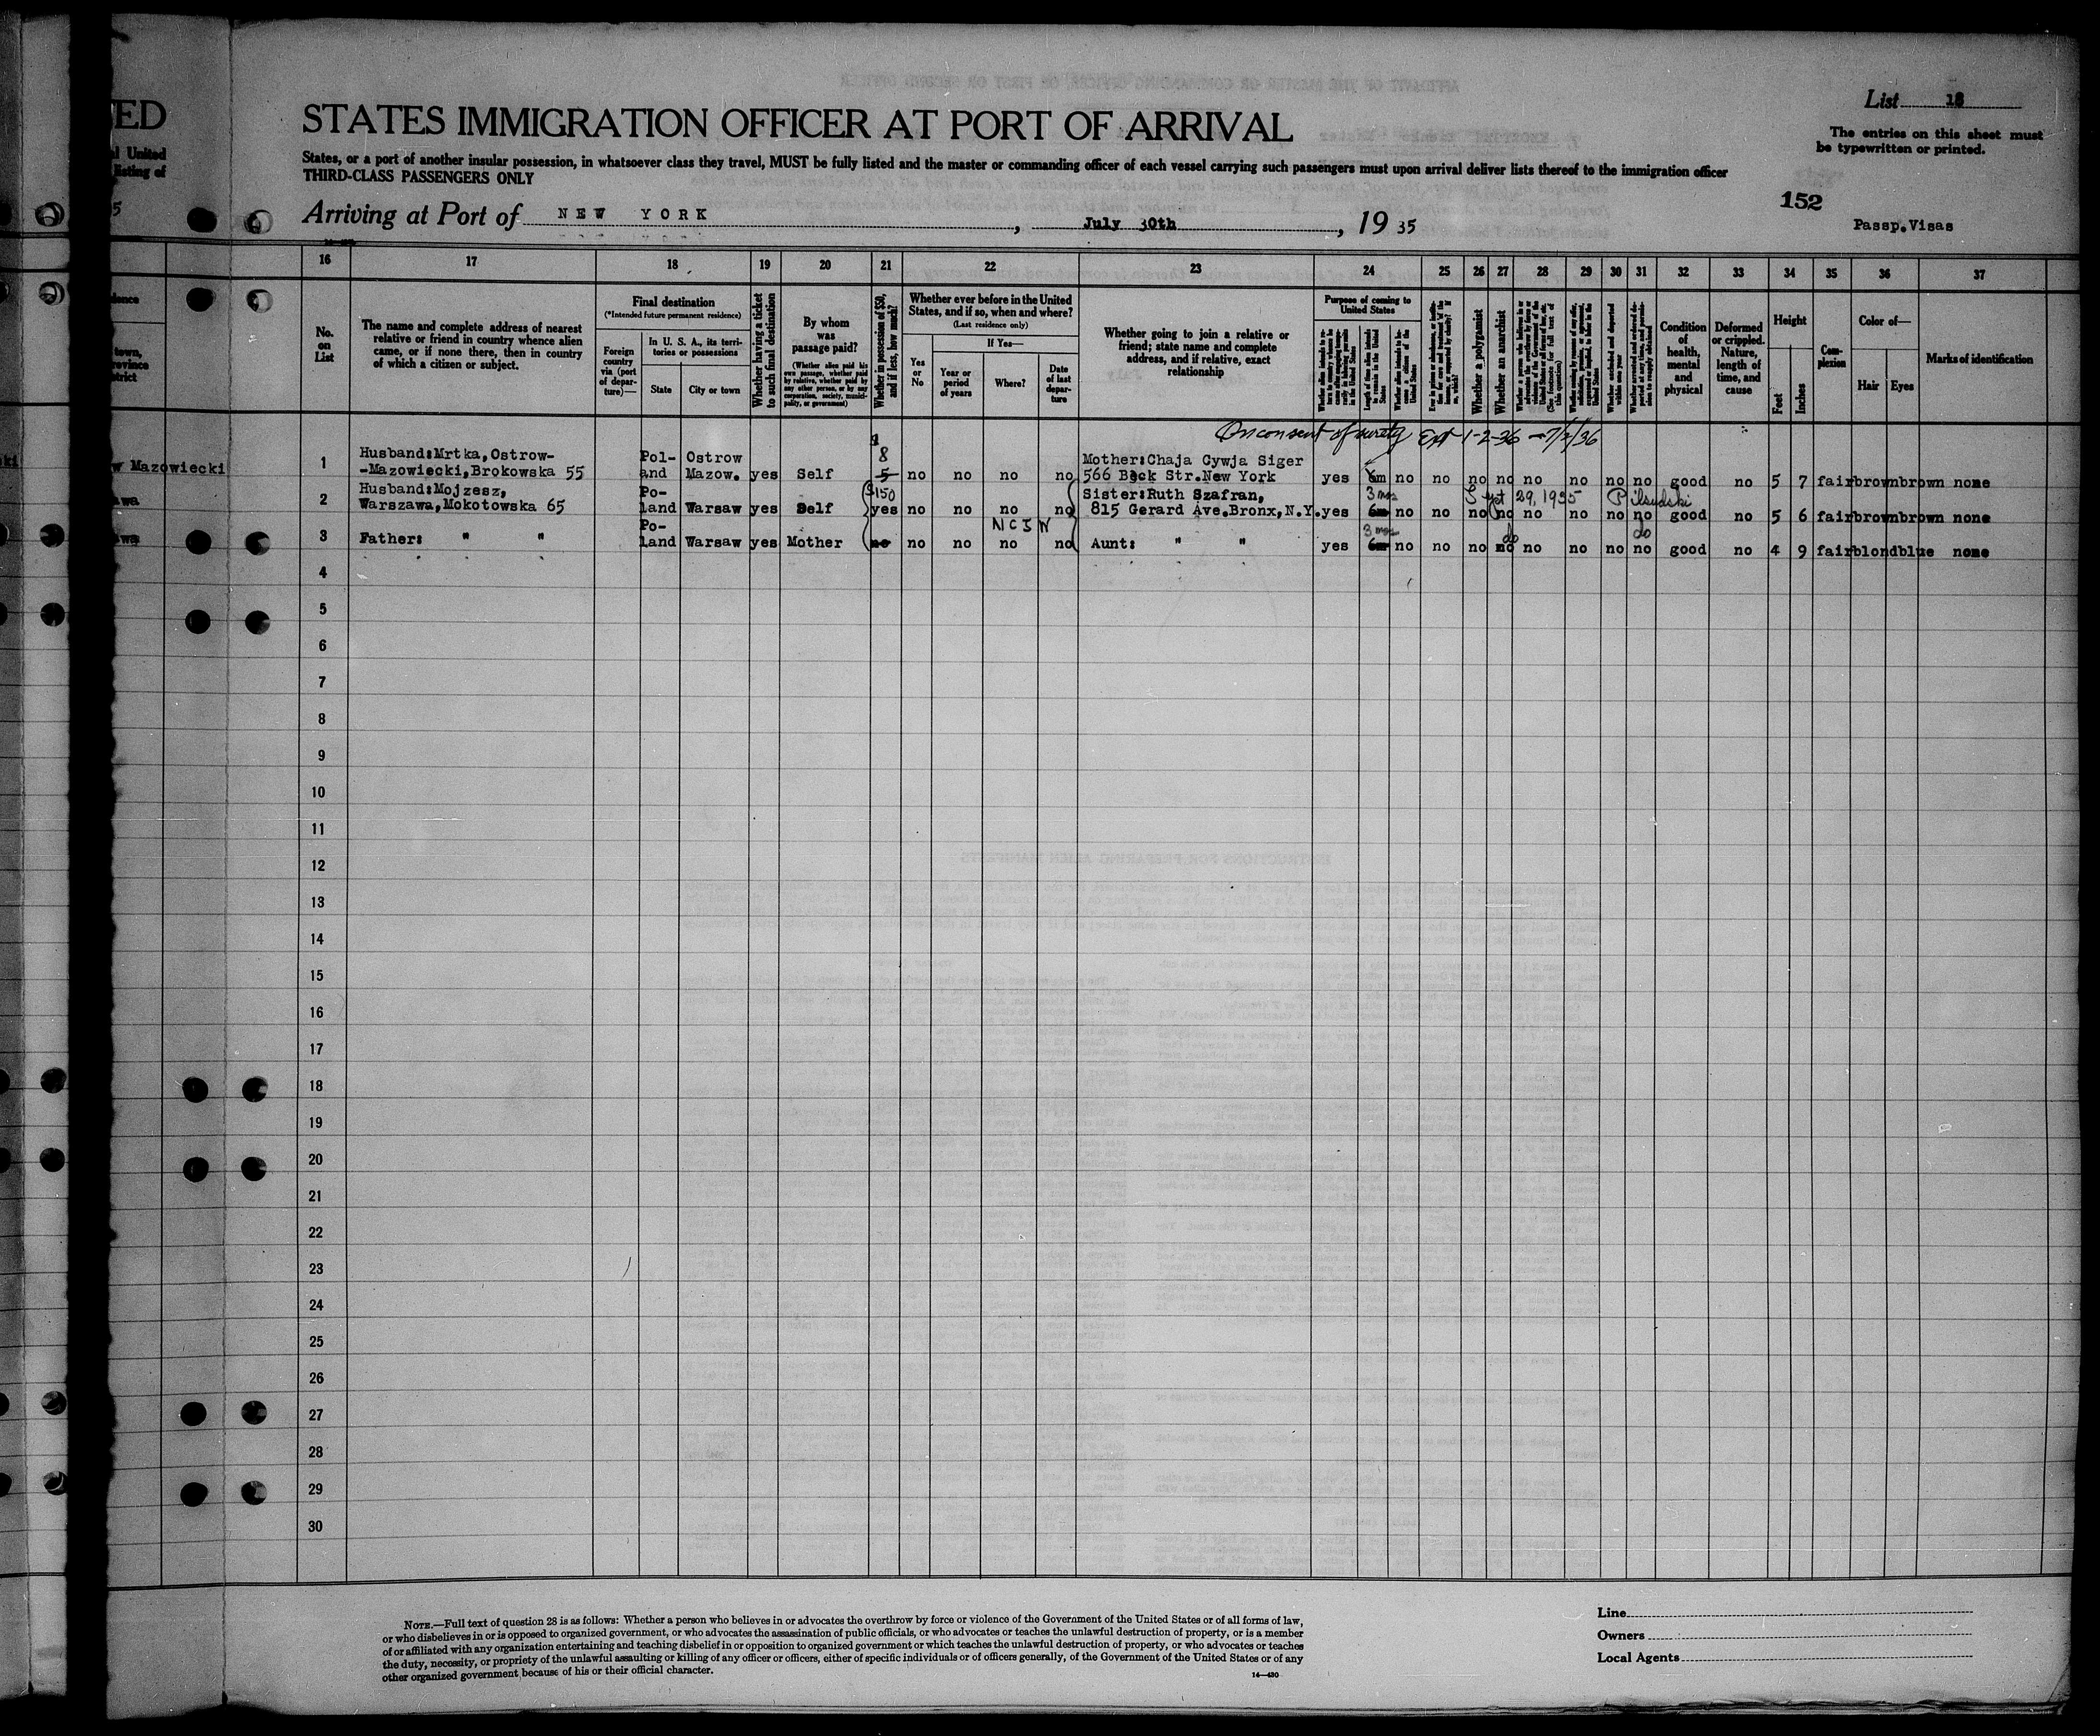 ED
STATES IMMIGRATION OFFICER AT PORT OF ARRIVAL
List 18
The entries on this sheet must
be typewritten or printed.
l United
listing of
States, or a port of another insular possession, in whatsoever class they travel, MUST be fully listed and the master or commanding officer of each vessel carrying such passengers must upon arrival deliver lists thereof to the immigration officer
THIRD-CLASS PASSENGERS ONLY
152
5
Arriving at Port of NEW YORK, July 30th, 1935
Passp.Visas
16 17 18 19 20 21 22 23 24 25 26 27 28 29 30 31 32 33 34 35 36 37
No. on List
The name and complete address of nearest relative or friend in country whence alien came, or if none there, then in country of which a citizen or subject.
Final destination
(*Intended future permanent residence)
Foreign country via (port of departure)—
In U. S. A., its territories or possessions
State
City or town
Whether having a ticket to such final destination
By whom was passage paid?
(Whether alien paid his own passage, whether paid by relative, whether paid by any other person, or by any corporation, society, municipality, or government)
Whether in possession of $50, and if less, how much?
Whether ever before in the United States, and if so, when and where?
(Last residence only)
Yes or No
If Yes—
Year or period of years
Where?
Date of last departure
Whether going to join a relative or friend; state name and complete address, and if relative, exact relationship
Purpose of coming to United States
Whether a polygamist
Whether an anarchist
Condition of health, mental and physical
Deformed or crippled. Nature, length of time, and cause
Height
Feet
Inches
Complexion
Color of—
Hair
Eyes
Marks of identification
On consent of surety Ext 1-2-36 – 7/2/36
w Mazowiecki
1 Husband:Mrtka,Ostrow- Pol- Ostrow $8 Mother:Chaja Cywja Siger
-Mazowiecki,Brokowska 55 and Mazow. yes Self 5 no no no no 566 Beck Str.New York yes 6m no no no no no no no no good no 5 7 fair brown brown none
2 Husband:Mojzesz, Po- $150 Sister:Ruth Szafran, 3 mos Sept 29, 1935 Pilsudski
Warszawa,Mokotowska 65 land Warsaw yes Self yes no no no no 815 Gerard Ave.Bronx,N.Y. yes 6m no no no no no no no no good no 5 6 fair brown brown none
Po- NCIW 3 mos do do
3 Father: " " land Warsaw yes Mother no no no no no Aunt: " " yes 6m no no no no no no no no good no 4 9 fair blond blue none
4
5
6
7
8
9
10
11
12
13
14
15
16
17
18
19
20
21
22
23
24
25
26
27
28
29
30
NOTE.—Full text of question 28 is as follows: Whether a person who believes in or advocates the overthrow by force or violence of the Government of the United States or of all forms of law,
or who disbelieves in or is opposed to organized government, or who advocates the assassination of public officials, or who advocates or teaches the unlawful destruction of property, or is a member
of or affiliated with any organization entertaining and teaching disbelief in or opposition to organized government or which teaches the unlawful destruction of property, or who advocates or teaches
the duty, necessity, or propriety of the unlawful assaulting or killing of any officer or officers, either of specific individuals or of officers generally, of the Government of the United States or of any
other organized government because of his or their official character.
14—430
Line
Owners
Local Agents